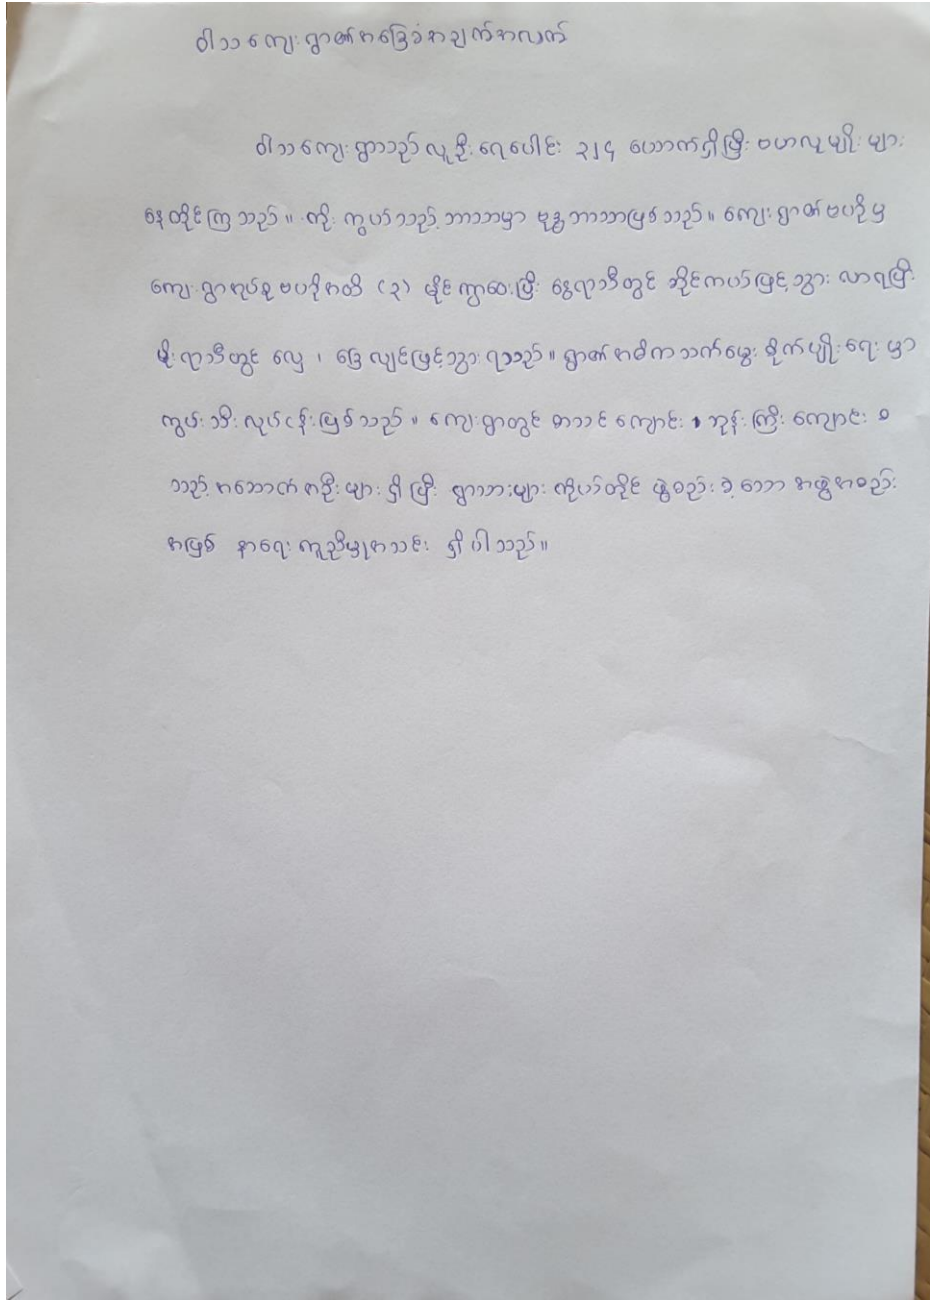 ဝါသကျေးရွာ၏အခြေခံအချက်အလက်
ဝါသကျေးရွာသည် လူဦးရေပေါင်း ၃၂၄ ယောက်ရှိပြီး ဗမာလူမျိုးများ
နေထိုင်ကြသည်။ ကိုးကွယ်သည့်ဘာသာမှာ ဗုဒ္ဓဘာသာဖြစ်သည်။ ကျေးရွာ၏ဗဟိုမှ
ကျေးရွာအုပ်စုဗဟိုအထိ (၃) မိုင်ကွာဝေးပြီး နွေရာသီတွင် ဆိုင်ကယ်ဖြင့်သွားလာရပြီး
မိုးရာသီတွင် လှေ ၊ ခြေလျင်ဖြင့်သွားရသည်။ ရွာ၏အဓိကအသက်မွေး စိုက်ပျိုးရေးမှာ
ကွမ်းသီးလုပ်ငန်းဖြစ်သည်။ ကျေးရွာတွင် စာသင်ကျောင်း ၊ ဘုန်းကြီးကျောင်း စ
သည့်အဆောက်အဦးများ ရှိပြီး ရွာသားများ ကိုယ်တိုင် ဖွဲ့စည်းခဲ့သော အဖွဲ့အစည်း
အဖြစ် နာရေးကူညီမှုအသင်း ရှိပါသည်။